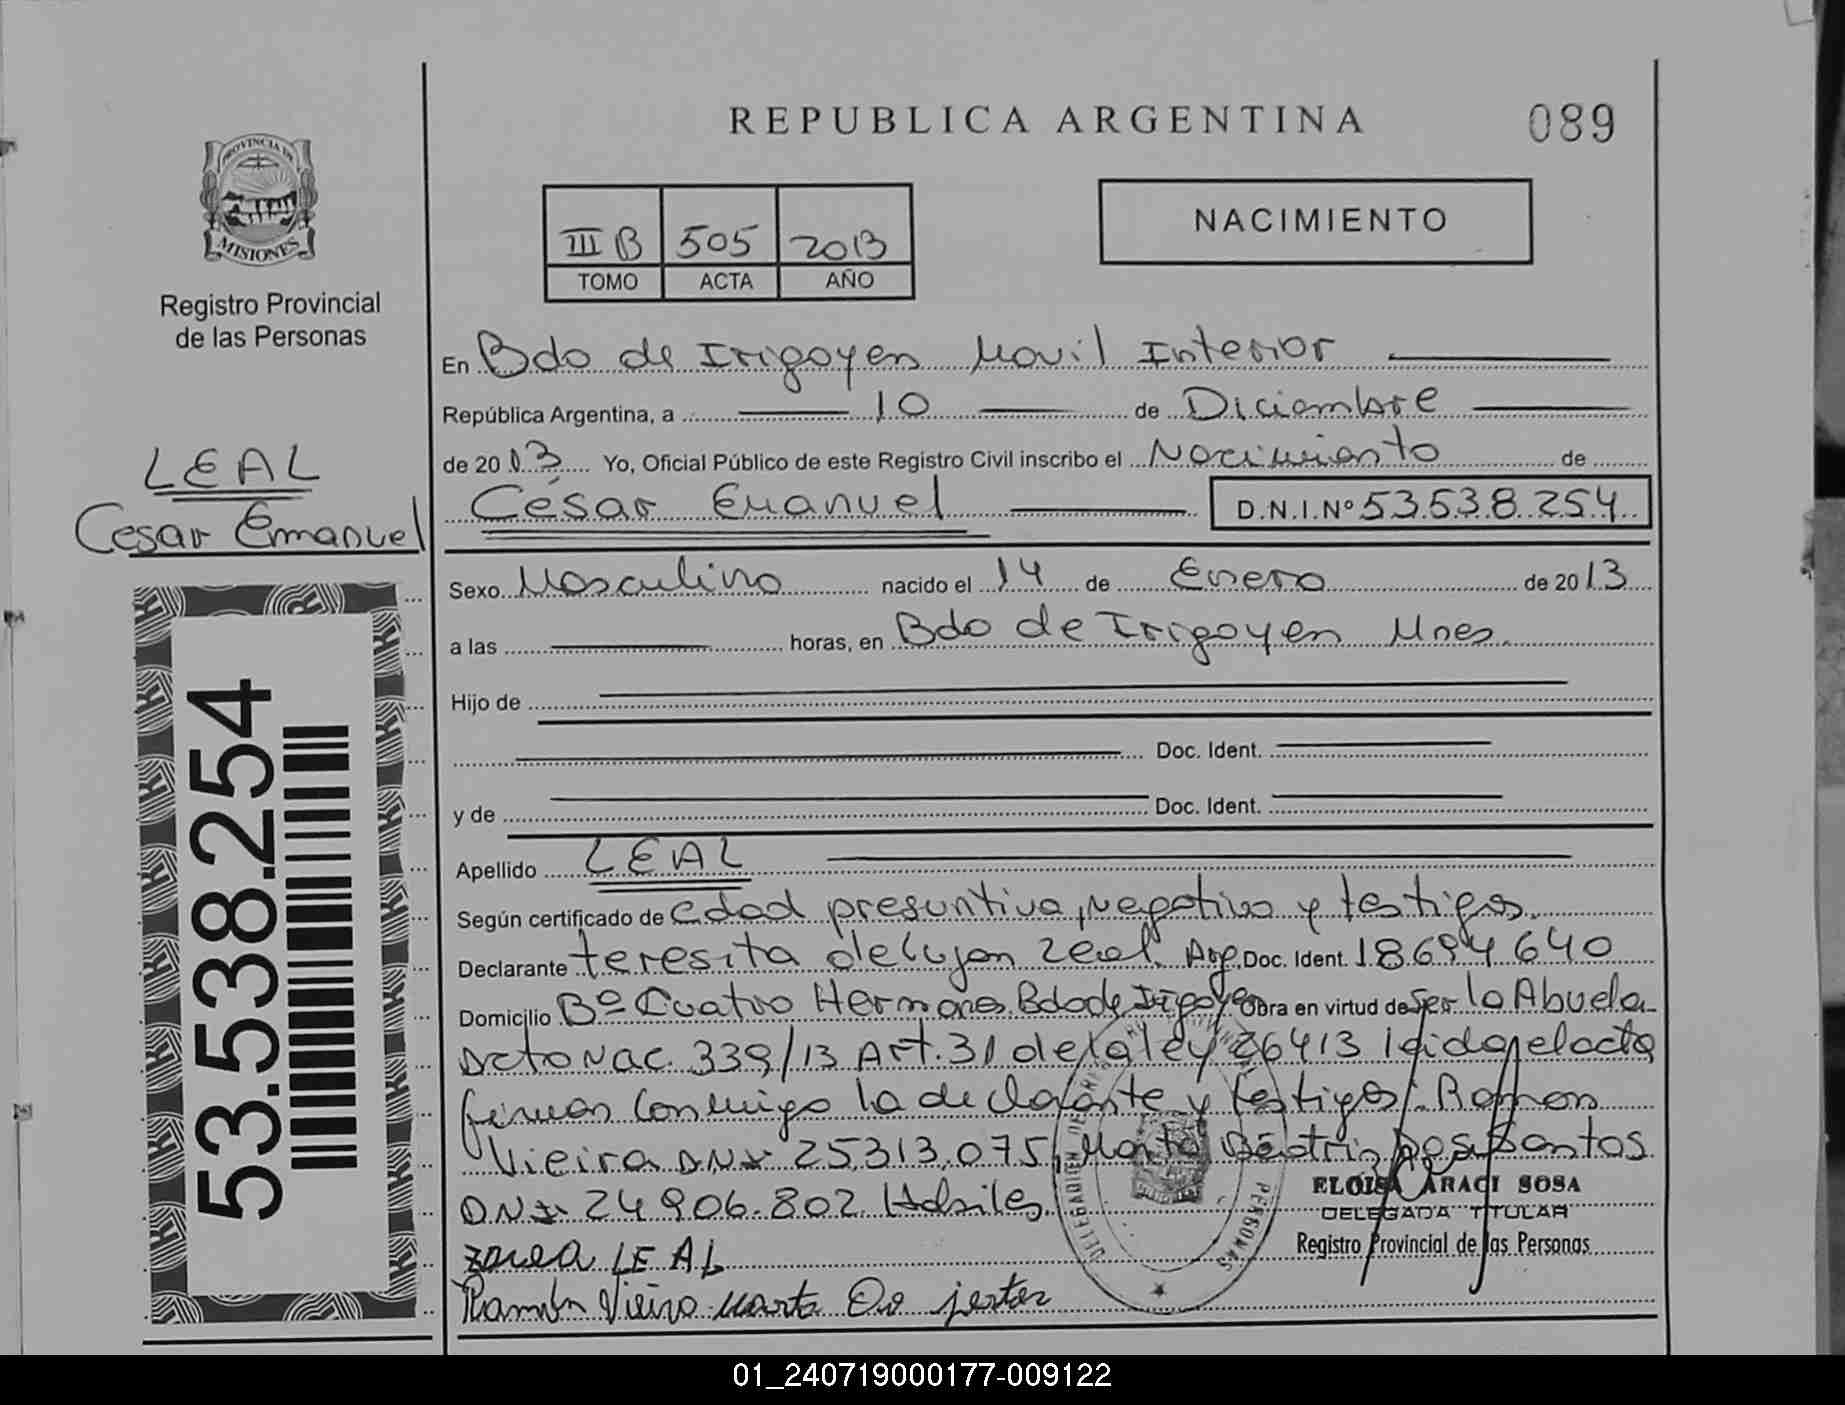 REPUBLICA ARGENTINA
089
PROVINCIA DE
MISIONES
Registro Provincial
de las Personas
III B 505 2013
TOMO ACTA AÑO
NACIMIENTO
En Bdo de Irigoyen Movil Interior
República Argentina, a 10 de Diciembre
de 2013 Yo, Oficial Público de este Registro Civil inscribo el Nacimiento de
César Emanuel D.N.I.Nº 53.538.254
LEAL
Cesar Emanuel
53.538.254
Sexo Masculino nacido el 14 de Enero de 2013
a las horas, en Bdo de Irigoyen Mnes.
Hijo de
Doc. Ident.
y de Doc. Ident.
Apellido LEAL
Según certificado de edad presuntiva, negativo y testigos.
Declarante teresita de lujan Leal. Arg. Doc. Ident. 18694640
Domicilio Bº Cuatro Hermanos Bdo de Irigoyen Obra en virtud de Ser la Abuela
Dcto Nac. 339/13 Art. 31 de la ley 26413 leida el acta
firman conmigo la declarante y testigos: Ramon
Vieira DNI 25313.075, Marta Beatriz Dos Santos
DNI 24906.802 Habiles
LEAL
Ramon Vieira Marta
PERSONAS
ELOISA ARACI SOSA
DELEGADA TITULAR
Registro Provincial de las Personas
01_240719000177-009122